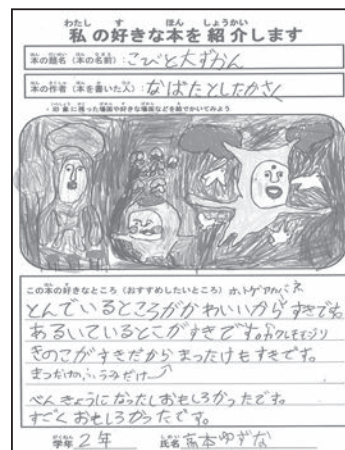 わたし す ほん しょうかい
私の好きな本を紹介します
本の題名（本の名前）：こびと大ずかん
本の作者（本を書いた人）：なばたとしたかさく
・印象に残った場面や好きな場面などを絵でかいてみよう
この本の好きなところ（おすすめしたいところ）ホトケアカバネ
とんでいるところがかわいいからすきです。
あるいているとこがすきです。カクレモモジリ
きのこがすきだからまったけもすきです。
べんきょうになったしおもしろかったです。
すごくおもしろかったです。
学年 2年 氏名 高本ゆずな